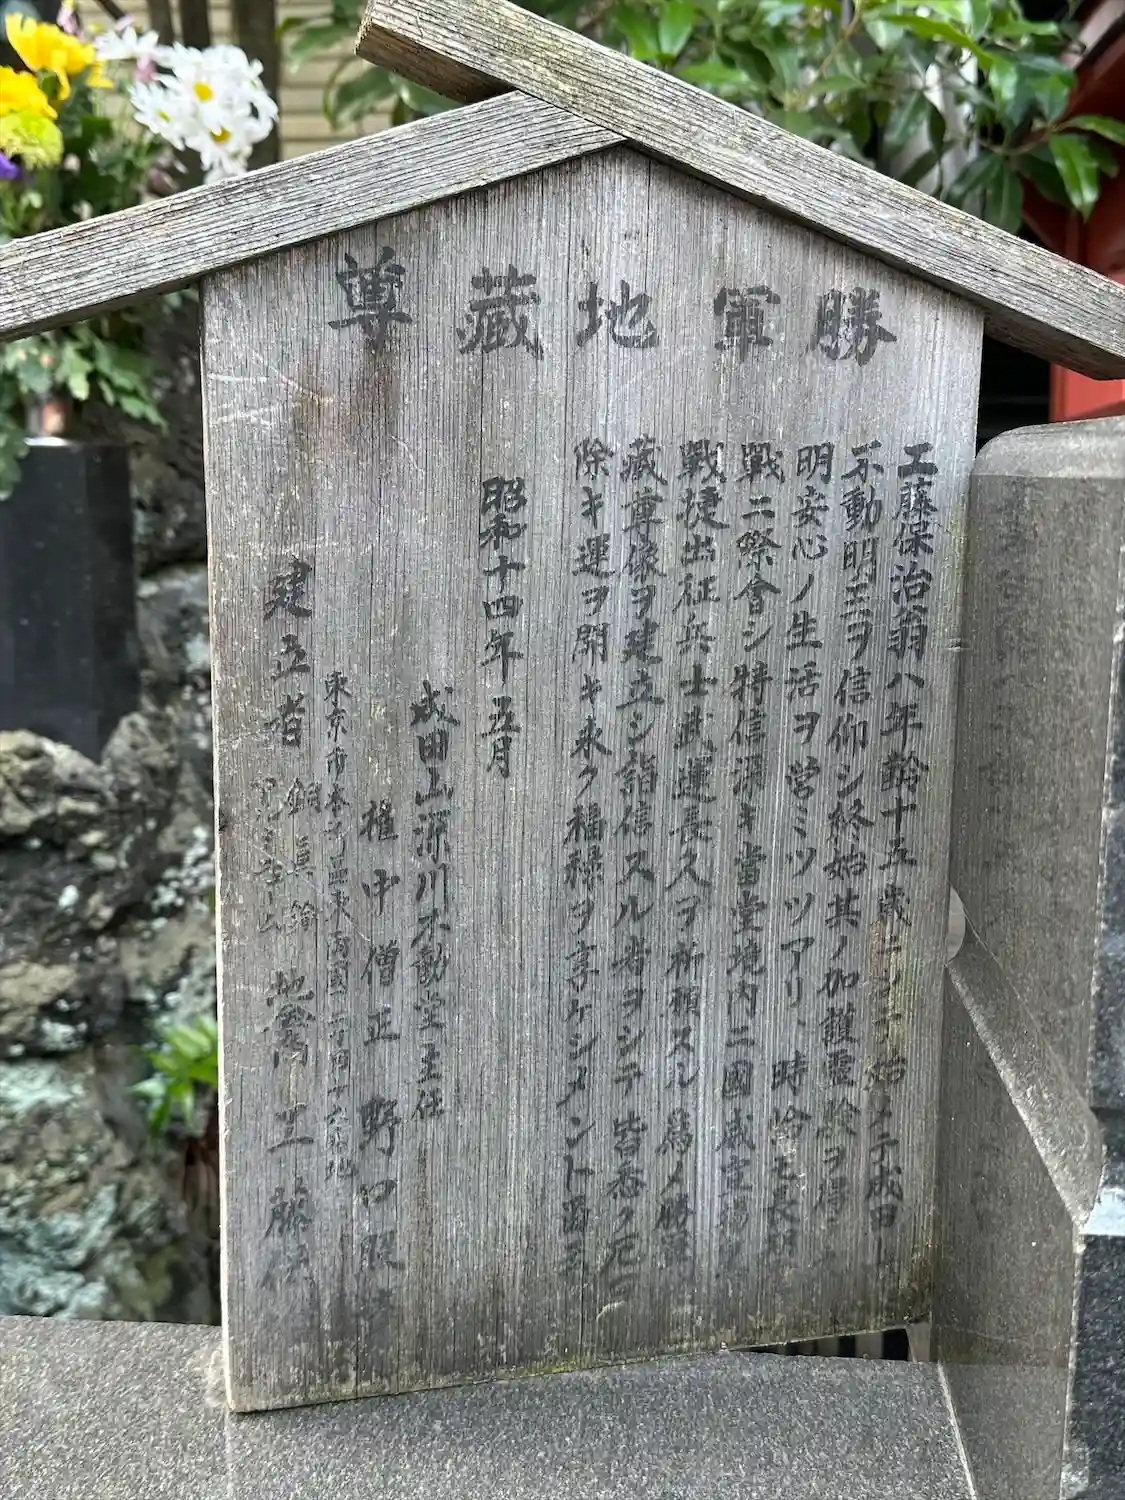 勝軍地藏尊
工藤保治翁ハ年齢十五歳ニシテ始メテ成田
不動明王ヲ信仰シ終始其ノ加護靈驗ヲ得
明安心ノ生活ヲ営ミツツアリ、時恰モ長期
戰ニ際會シ特信深キ當堂境内ニ國威宣揚
戰捷出征兵士武運長久ヲ祈願スル為ノ勝軍
藏尊像ヲ建立シ詣信スル者ヲシテ皆悉ク厄
除キ運ヲ開キ来ク福禄ヲ享ケシメント
昭和十四年五月
成田山深川不動堂主任
權中僧正 野口照
東京市本所區東兩國
建立者
工藤保